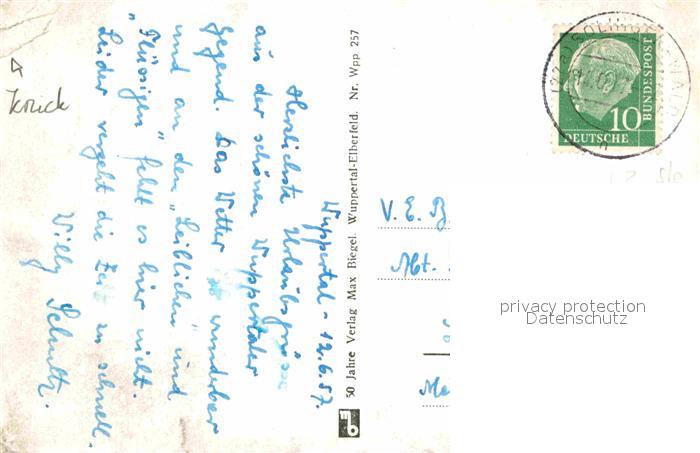 Wuppertal - 12.6.57.
Herzlichste Urlaubsgrüsse
aus der schönen Wuppertaler
Gegend. Das Wetter ist wunderbar
und an den „Leiblichen" und
„Flüssigen" fehlt es hier nicht.
Leider vergeht die Zeit zu schnell.
Willy Schultz.
Knick
50 Jahre Verlag Max Biegel. Wuppertal-Elberfeld. Nr. Wpp 257
10
DEUTSCHE
BUNDESPOST
V. E. B.
Abt.
privacy protection
Datenschutz